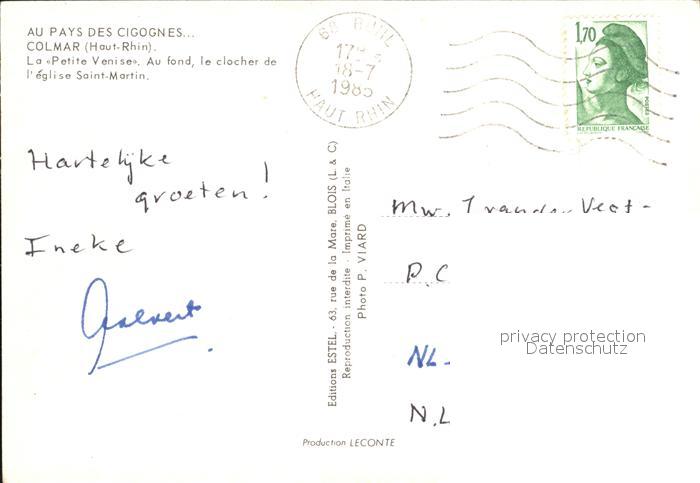 AU PAYS DES CIGOGNES...
COLMAR (Haut-Rhin).
La «Petite Venise». Au fond, le clocher de
l'église Saint-Martin.
68 BUHL
18-7
1985
HAUT RHIN
1,70
POSTES
REPUBLIQUE FRANÇAISE
Hartelijke
groeten!
Ineke
Editions ESTEL, - 63, rue de la Mare, BLOIS (L & C)
Reproduction interdite - Imprimé en Italie
Photo P. VIARD
Mw.
P.C
privacy protection
Datenschutz
NL-
N.L
Production LECONTE